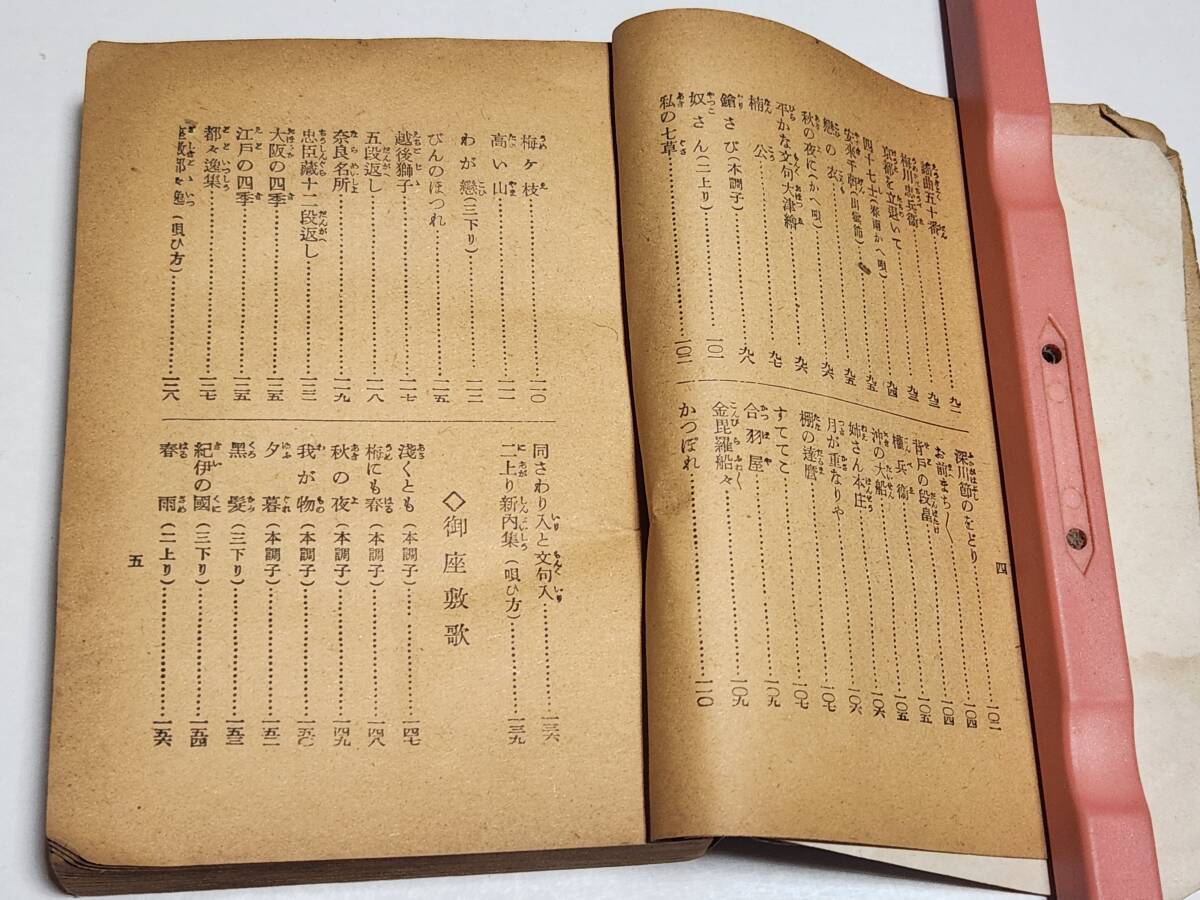 四
謠曲五十番……九一
梅川忠兵衛……九三
京都を立退いて……九三
四十七士(春雨かへ唄)……九四
安來千軒(出雲節)……九五
戀の衣……九五
秋の夜に(かへ唄)……九六
平かな文句大津繪……九六
楠公……九七
鎗さび(本調子)……九八
奴さん(二上り)……一〇一
私の七草……一〇二
深川節のをどり……一〇三
お前まち〱……一〇四
背戸の段畠……一〇四
權兵衛……一〇五
沖の大船……一〇五
姉さん本庄……一〇六
月が重なりや……一〇六
棚の達麿……一〇七
すててこ……一〇七
合羽屋……一〇九
金毘羅船々……一〇九
かつぽれ……一一〇
梅ヶ枝……一一〇
高い山……一一一
わが戀(三下り)……一一二
びんのほつれ……一一五
越後獅子……一一七
五段返し……一一八
奈良名所……一一九
忠臣藏十二段返し……一二三
大阪の四季……一二五
江戸の四季……一三五
都々逸集……一三七
座敷都々逸(唄ひ方)……一三八
同さわり入と文句入……一三六
二上り新內集(唄ひ方)……一三九
◇御座敷歌
淺くとも(本調子)……一四七
梅にも春(本調子)……一四八
秋の夜(本調子)……一四九
我が物(本調子)……一五〇
夕暮(本調子)……一五二
黑髮(三下り)……一五三
紀伊の國(三下り)……一五四
春雨(二上り)……一五六
五